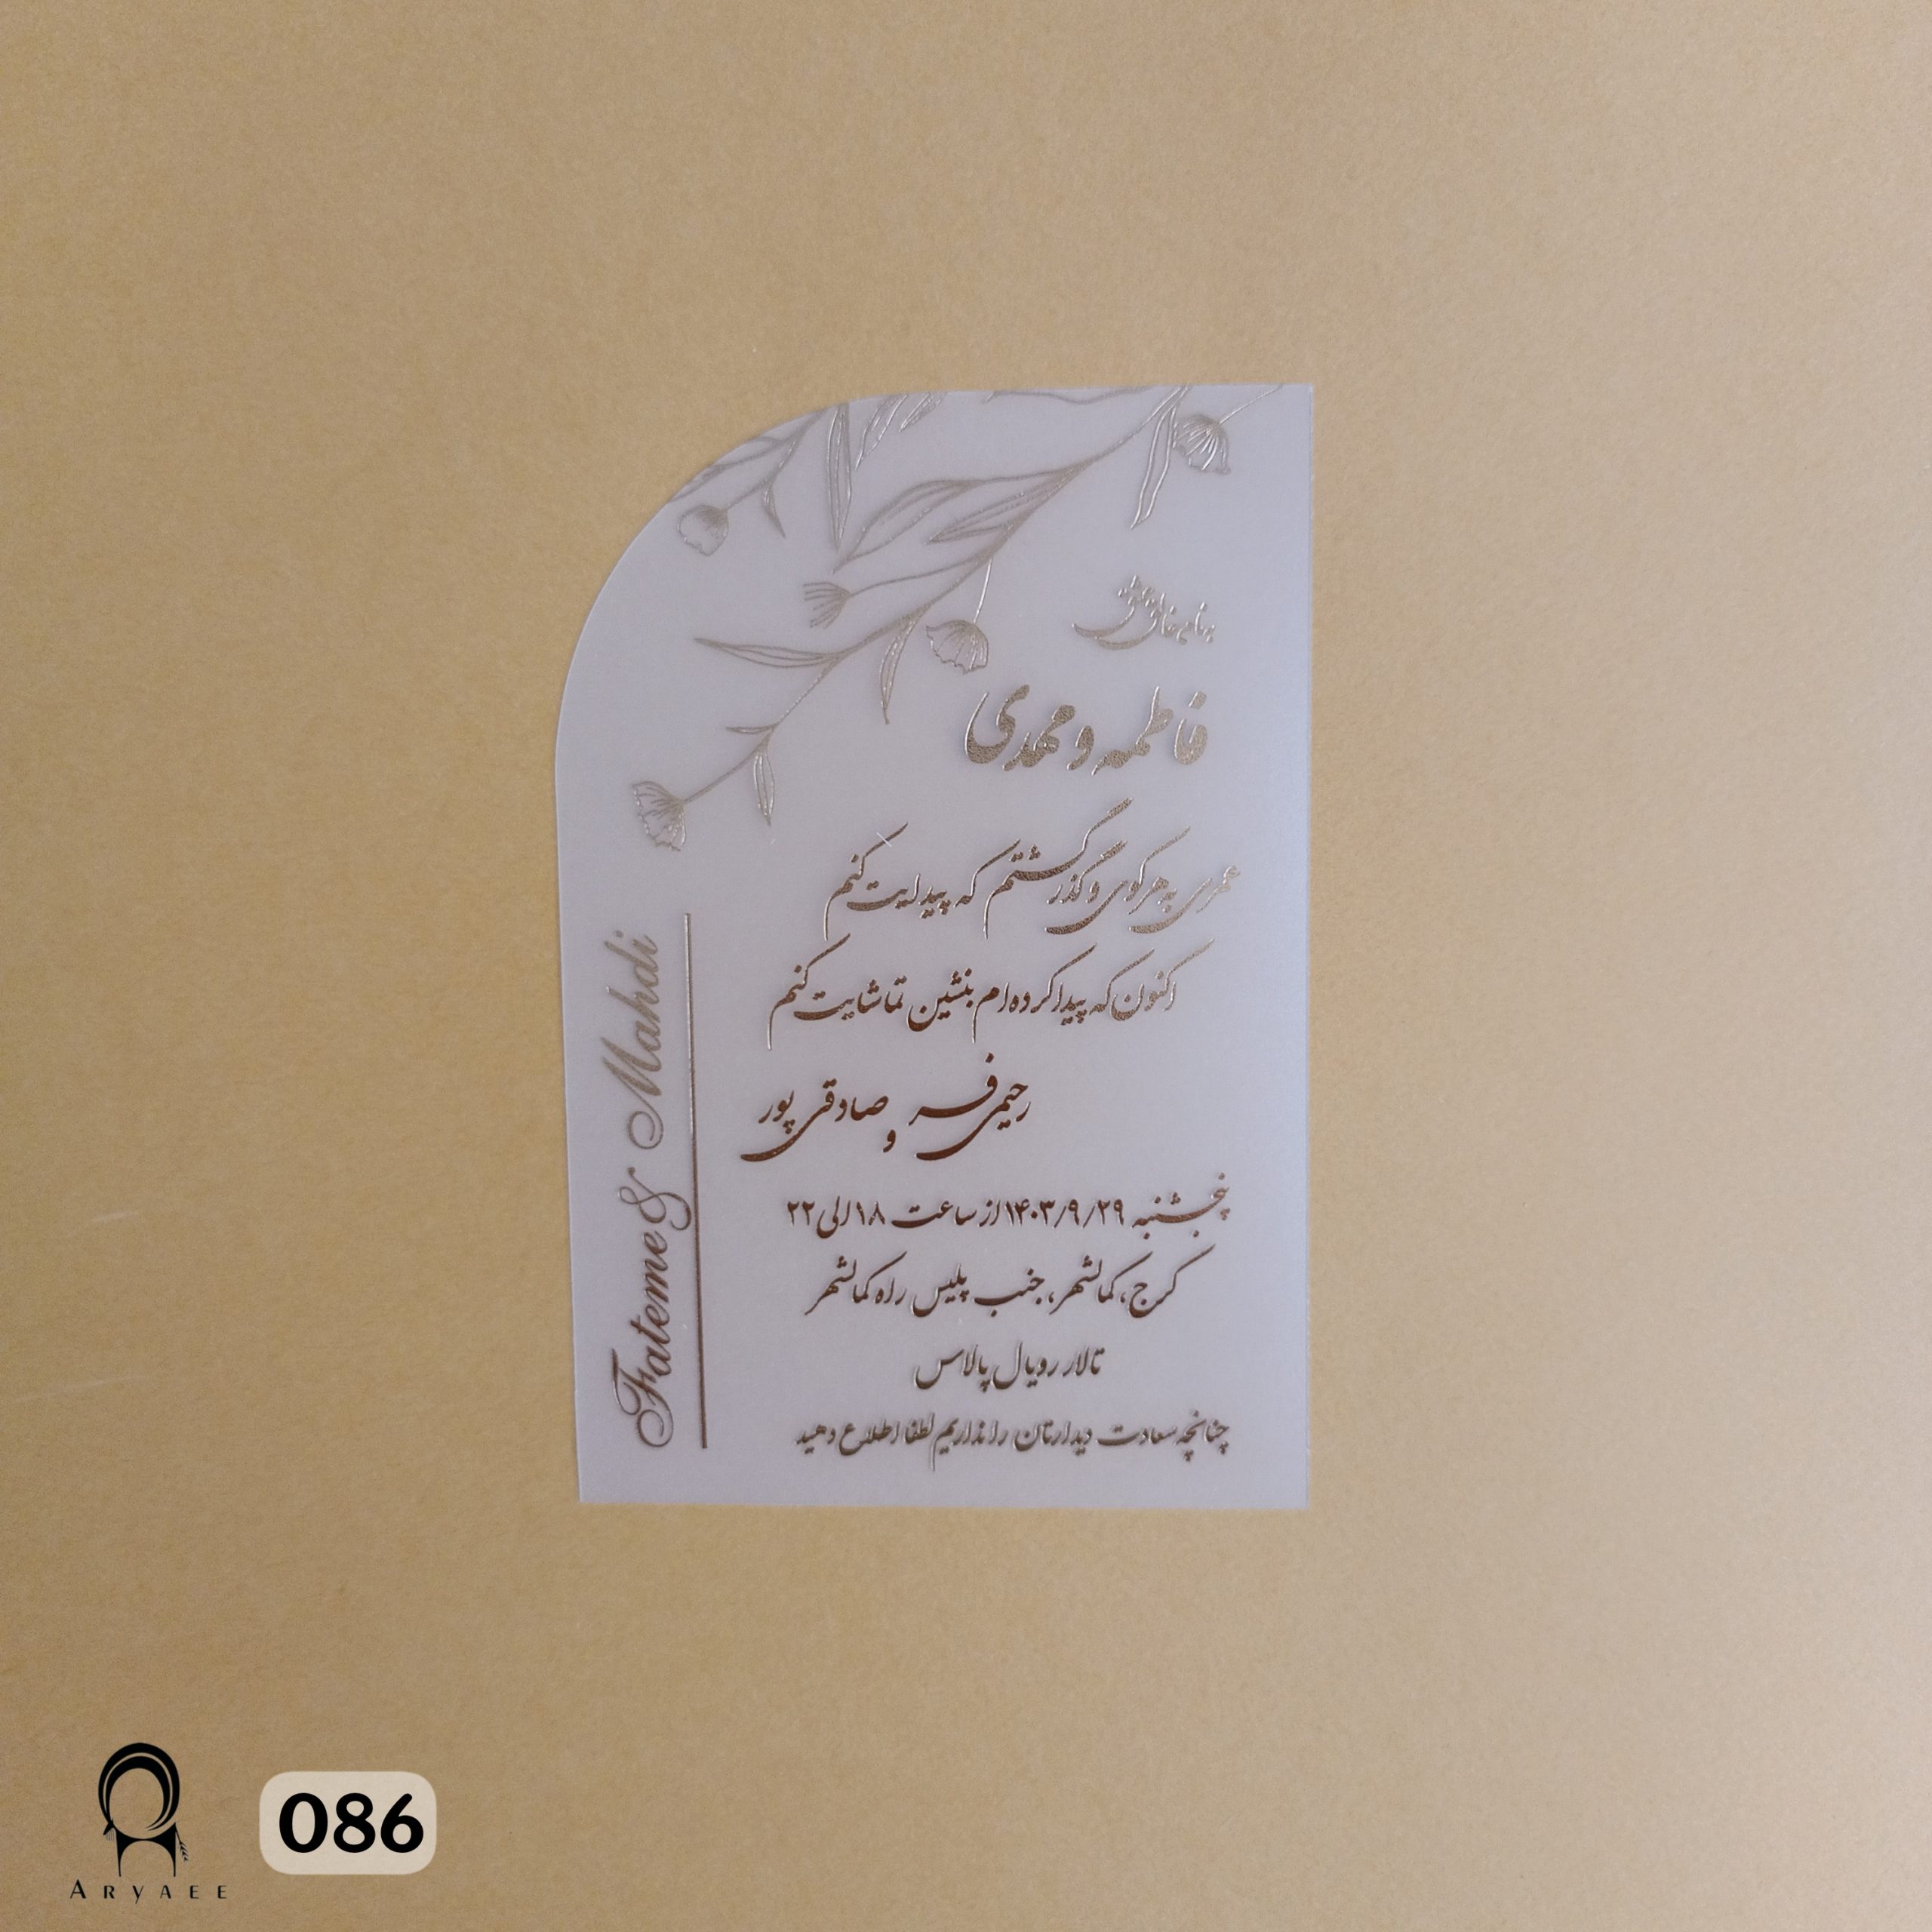 به نام خالق عشق
فاطمه و مهدی
عمری به هر کوی و گذر گشتم که پیدایت کنم
اکنون که پیدا کرده‌ام بنشین تماشایت کنم
رحیمی فر و صادقی پور
پنجشنبه ۱۴۰۳/۹/۲۹ از ساعت ۱۸ الی ۲۲
کرج، کمالشهر، جنب پلیس راه کمالشهر
تالار رویال پالاس
چنانچه سعادت دیدارتان را نداریم لطفا اطلاع دهید
Fateme & Mahdi
086
ARYAEE